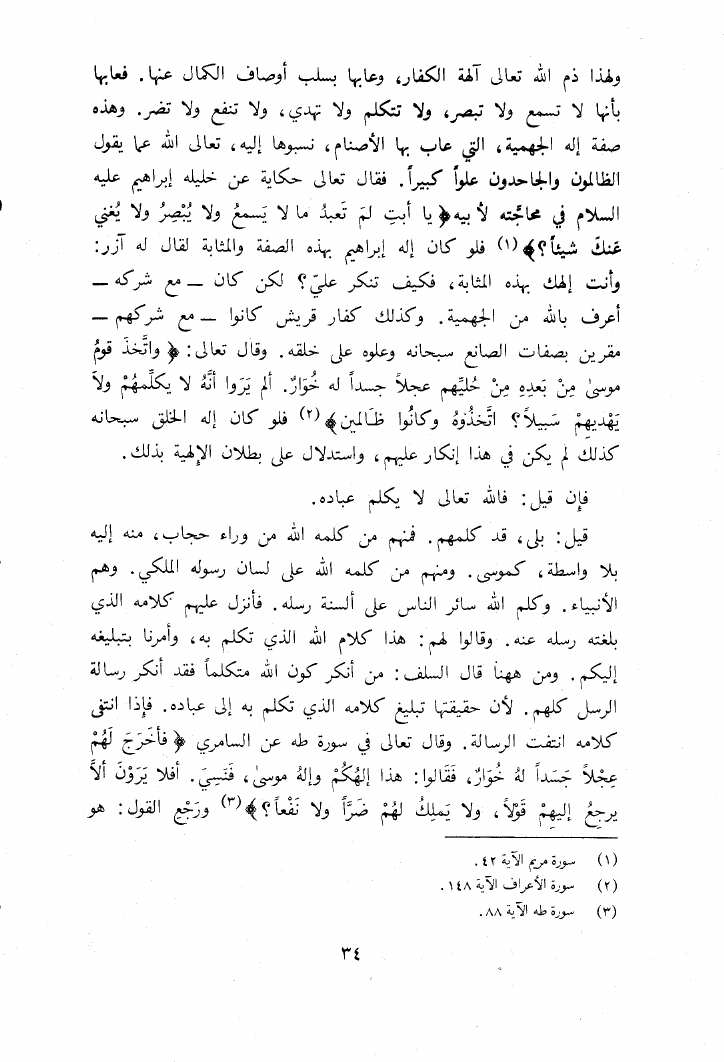 ولهذا ذم الله تعالى آلهة الكفار، وعابها بسلب أوصاف الكمال عنها. فعابها
بأنها لا تسمع ولا تبصر، ولا تتكلم ولا تهدي، ولا تنفع ولا تضر. وهذه
صفة إله الجهمية، التي عاب بها الأصنام، نسبوها إليه، تعالى الله عما يقول
الظالمون والجاحدون علواً كبيراً. فقال تعالى حكاية عن خليله إبراهيم عليه
السلام في محاجّته لأبيه ﴿يا أبتِ لمَ تَعبدُ ما لا يَسمعُ ولا يُبْصِرُ ولا يُغني
عَنكَ شيئاً؟﴾(١) فلو كان إله إبراهيم بهذه الصفة والمثابة لقال له آزر:
وأنت إلهك بهذه المثابة، فكيف تنكر عليّ؟ لكن كان — مع شركه —
أعرف بالله من الجهمية. وكذلك كفار قريش كانوا — مع شركهم —
مقرين بصفات الصانع سبحانه وعلوه على خلقه. وقال تعالى: ﴿واتَّخذَ قومُ
موسىٰ مِنْ بَعدِهِ مِنْ حُليِّهم عجلاً جسداً له خُوَارٌ. ألم يَرَوا أنَّهُ لا يكلِّمهُمْ ولاَ
يَهْديهِمْ سَبيلاً؟ اتَّخذُوهُ وكانُوا ظَالمين﴾(٢) فلو كان إله الخلق سبحانه
كذلك لم يكن في هذا إنكار عليهم، واستدلال على بطلان الإلهية بذلك.
فإن قيل: فالله تعالى لا يكلم عباده.
قيل: بلى، قد كلمهم. فمنهم من كلمه الله من وراء حجاب، منه إليه
بلا واسطة، كموسى. ومنهم من كلمه الله على لسان رسوله الملكي. وهم
الأنبياء. وكلم الله سائر الناس على ألسنة رسله. فأنزل عليهم كلامه الذي
بلغته رسله عنه. وقالوا لهم: هذا كلام الله الذي تكلم به، وأمرنا بتبليغه
إليكم. ومن ههنا قال السلف: من أنكر كون الله متكلماً فقد أنكر رسالة
الرسل كلهم. لأن حقيقتها تبليغ كلامه الذي تكلم به إلى عباده. فإذا انتفى
كلامه انتفت الرسالة. وقال تعالى في سورة طه عن السامري ﴿فأَخرَجَ لَهُمْ
عِجْلاً جَسَداً لهُ خُوَارٌ، فَقَالوا: هذا إلهُكُمْ وإلهُ موسىٰ، فَنَسِيَ. أفلا يَرَوْنَ ألاَّ
يرجِعُ إليهِمْ قَوْلاً، ولا يَملِكُ لهُمْ ضَرَّاً ولا نَفْعاً؟﴾(٣) ورَجْعِ القول: هو
(١) سورة مريم الآية ٤٢.
(٢) سورة الأعراف الآية ١٤٨.
(٣) سورة طه الآية ٨٨.
٣٤